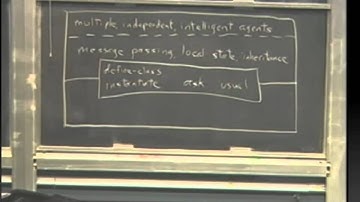 multiple independent, intelligent agents
message passing, local state, inheritance
define-class
instantiate ask usual